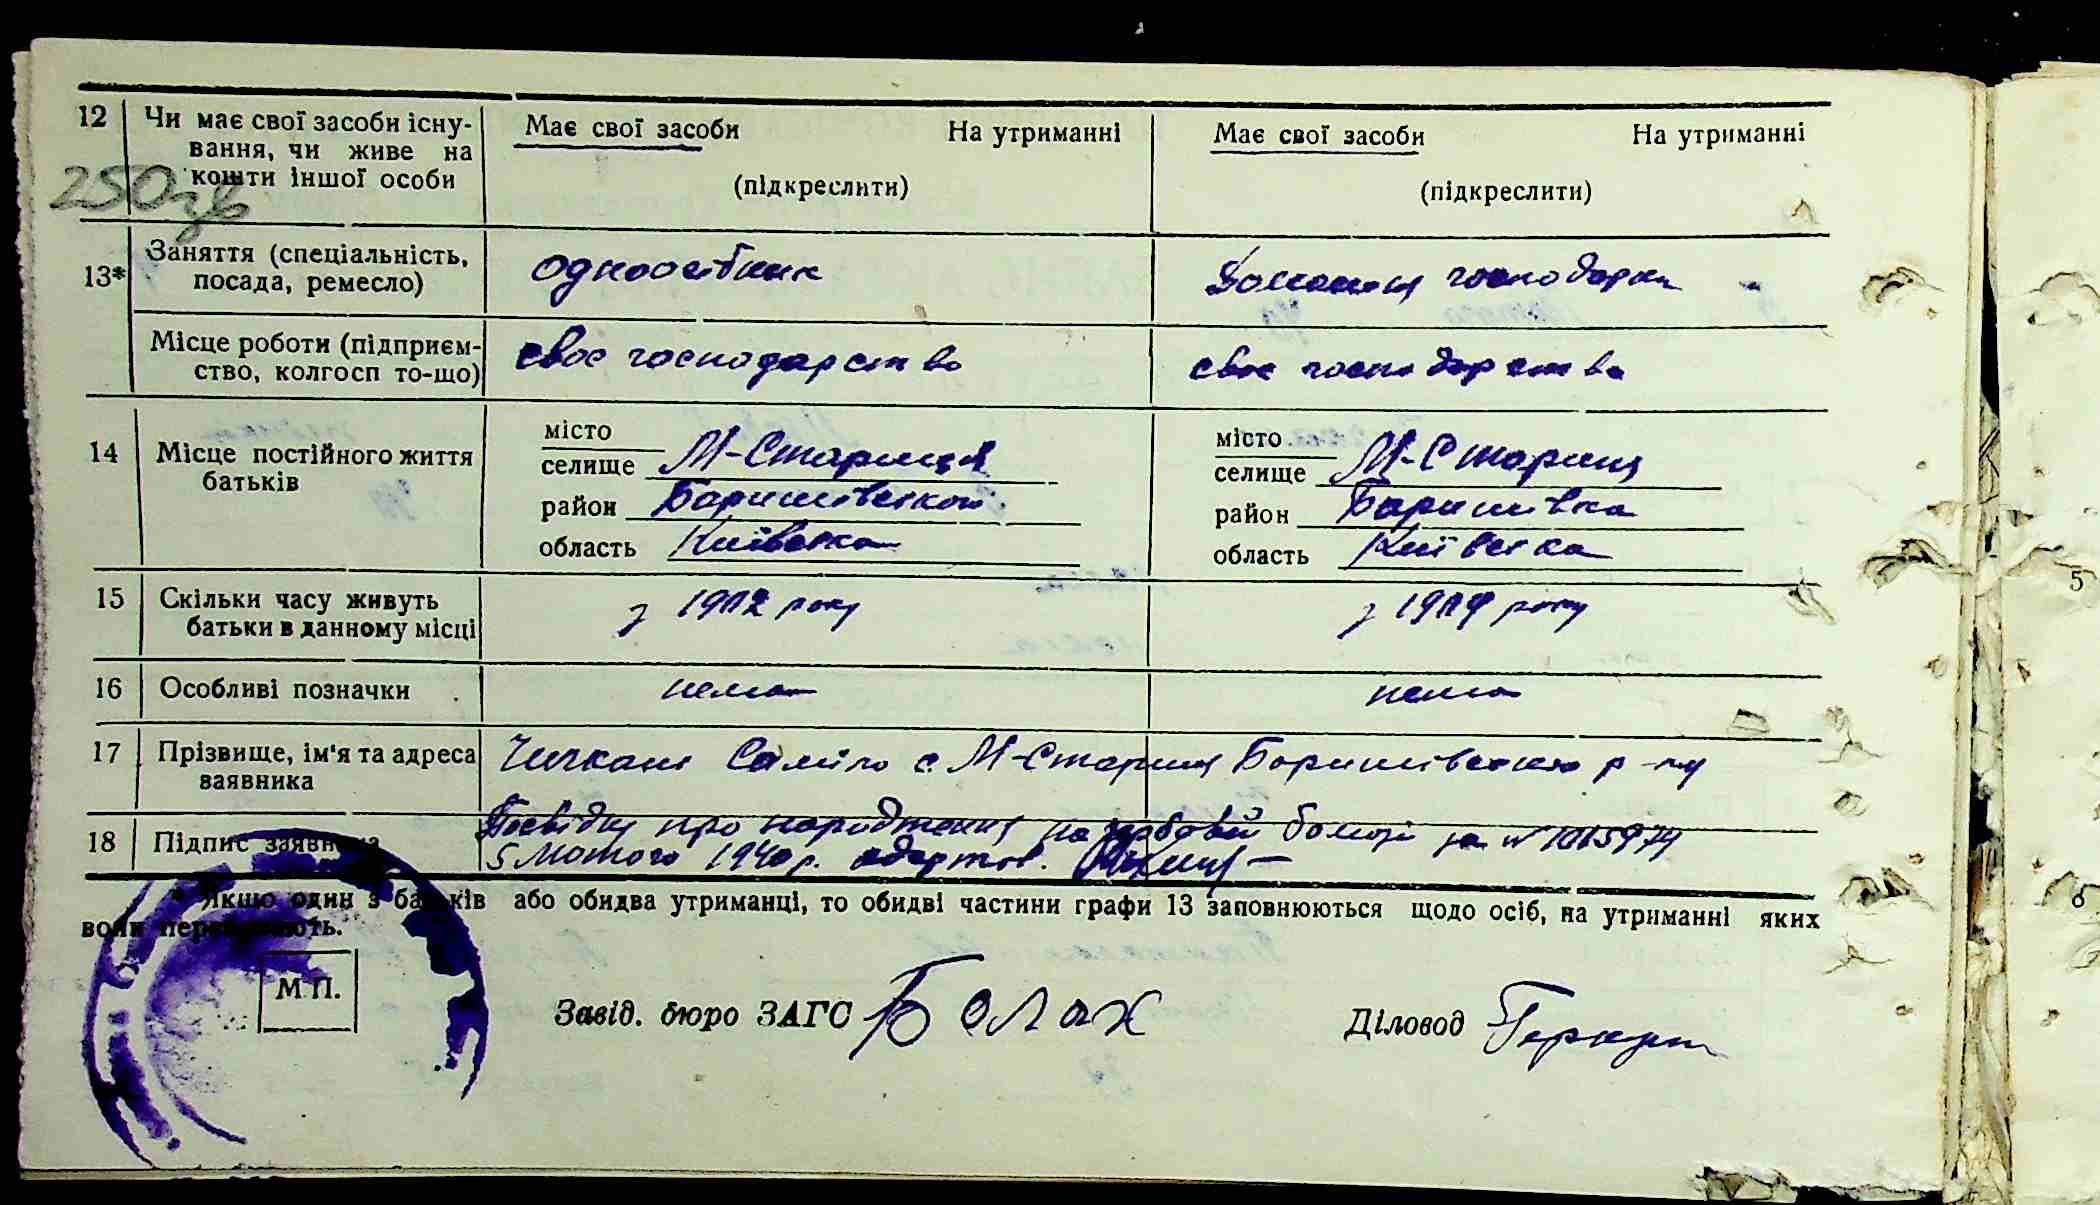 12 Чи має свої засоби існу- Має свої засоби На утриманні Має свої засоби На утриманні
вання, чи живе на
кошти іншої особи (підкреслити) (підкреслити)
250зв
13* Заняття (спеціальність, одноосібник Домашня господарка
посада, ремесло)
Місце роботи (підприєм- своє господарство своє господарство
ство, колгосп то-що)
14 Місце постійного життя місто місто
батьків селище М-Стариця селище М-Стариця
район Баришівської район Баришівка
область Київська область Київська
15 Скільки часу живуть з 1912 року з 1919 року
батьки в данному місці
16 Особливі позначки нема нема
17 Прізвище, ім'я та адреса Чичкань Саміло с. М-Стариця Баришівського р-ну
заявника
18 Підпис заявника Посвідку про народження на гербовій бомазі за №
5 Лютого 1940 р. одержав.
* Якщо один з батьків або обидва утриманці, то обидві частини графи 13 заповнюються щодо осіб, на утриманні яких
вони перебувають.
М П.
Завід. бюро ЗАГС Болах Діловод
5
6